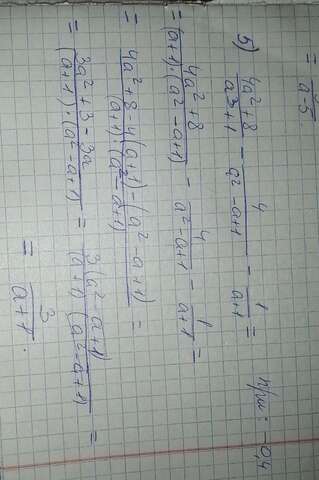 = 1/(a-5).
5) (4a²+8)/(a³+1) - 4/(a²-a+1) - 1/(a+1) = при: -0,4
= (4a²+8)/((a+1)(a²-a+1)) - 4/(a²-a+1) - 1/(a+1) =
= (4a²+8-4(a+1)-(a²-a+1))/((a+1)(a²-a+1)) =
= (3a²+3-3a)/((a+1)·(a²-a+1)) = 3(a²-a+1)/((a+1)(a²-a+1)) =
= 3/(a+1).